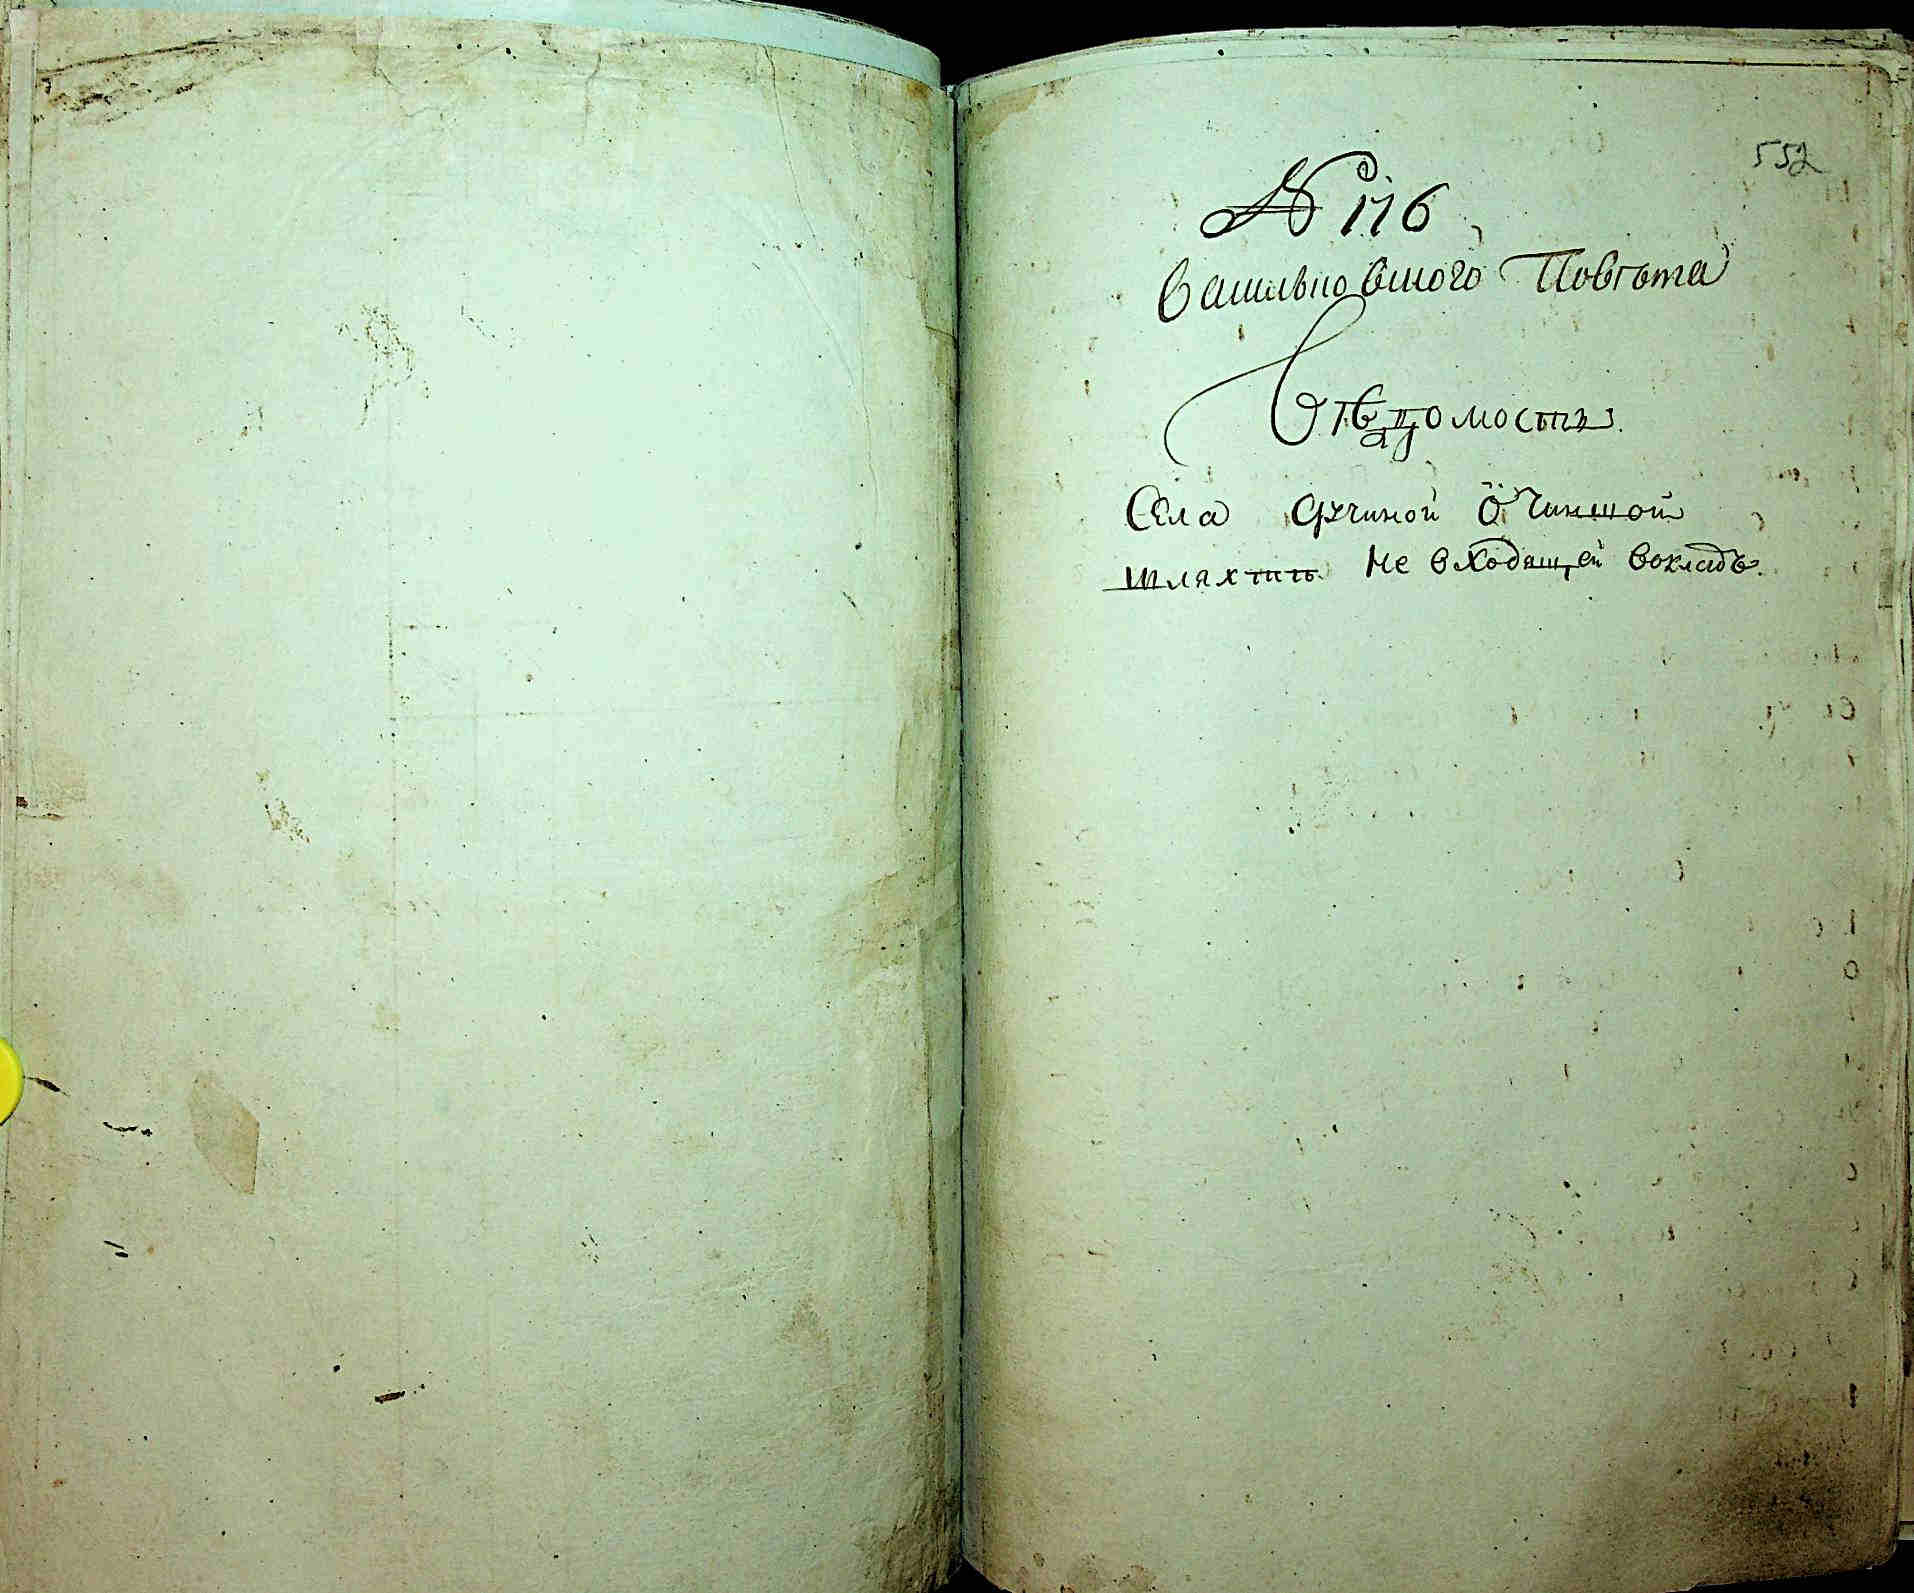 552
№ 176
Васильковского Повѣта
Вѣдомость
Села Фузиной о Чиншой
шляхтить не входящей вокладъ.